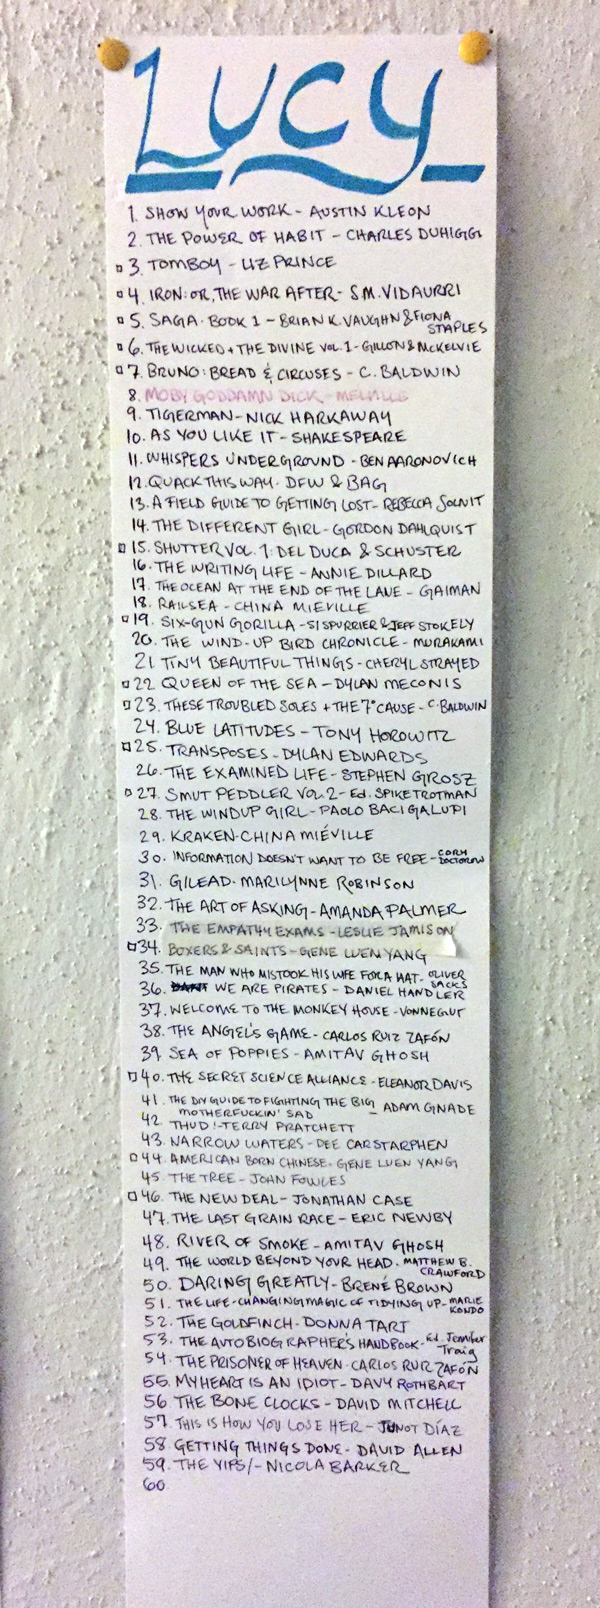 LUCY
1. SHOW YOUR WORK - AUSTIN KLEON
2. THE POWER OF HABIT - CHARLES DUHIGG
3. TOMBOY - LIZ PRINCE
4. IRON: OR, THE WAR AFTER - S.M. VIDAURRI
5. SAGA. BOOK 1 - BRIAN K. VAUGHN & FIONA
STAPLES
6. THE WICKED + THE DIVINE VOL. 1 - GILLON & MCKELVIE
7. BRUNO: BREAD & CIRCUSES - C. BALDWIN
8. MOBY GODDAMN DICK - MELVILLE
9. TIGERMAN - NICK HARKAWAY
10. AS YOU LIKE IT - SHAKESPEARE
11. WHISPERS UNDERGROUND - BEN AARONOVICH
12. QUACK THIS WAY - DFW & BAG
13. A FIELD GUIDE TO GETTING LOST - REBECCA SOLNIT
14. THE DIFFERENT GIRL - GORDON DAHLQUIST
15. SHUTTER VOL. 1: DEL DUCA & SCHUSTER
16. THE WRITING LIFE - ANNIE DILLARD
17. THE OCEAN AT THE END OF THE LANE - GAIMAN
18. RAILSEA - CHINA MIEVILLE
19. SIX-GUN GORILLA - SI SPURRIER & JEFF STOKELY
20. THE WIND-UP BIRD CHRONICLE - MURAKAMI
21 TINY BEAUTIFUL THINGS - CHERYL STRAYED
22 QUEEN OF THE SEA - DYLAN MECONIS
23. THESE TROUBLED SOLES + THE 7° CAUSE - C. BALDWIN
24. BLUE LATITUDES - TONY HOROWITZ
25. TRANSPOSES - DYLAN EDWARDS
26. THE EXAMINED LIFE - STEPHEN GROSZ
27. SMUT PEDDLER VOL 2 - Ed. SPIKE TROTMAN
28. THE WINDUP GIRL - PAOLO BACIGALUPI
29. KRAKEN - CHINA MIÉVILLE
30. INFORMATION DOESN'T WANT TO BE FREE - CORY
DOCTOROW
31. GILEAD. MARILYNNE ROBINSON
32. THE ART OF ASKING - AMANDA PALMER
33. THE EMPATHY EXAMS - LESLIE JAMISON
34. BOXERS & SAINTS - GENE LUEN YANG
35. THE MAN WHO MISTOOK HIS WIFE FOR A HAT - OLIVER
SACKS
36. WE ARE PIRATES - DANIEL HANDLER
37. WELCOME TO THE MONKEY HOUSE - VONNEGUT
38. THE ANGEL'S GAME - CARLOS RUIZ ZAFÓN
39. SEA OF POPPIES - AMITAV GHOSH
40. THE SECRET SCIENCE ALLIANCE - ELEANOR DAVIS
41. THE DIY GUIDE TO FIGHTING THE BIG
MOTHERFUCKIN' SAD - ADAM GNADE
42 THUD! - TERRY PRATCHETT
43. NARROW WATERS - DEE CARSTARPHEN
44. AMERICAN BORN CHINESE - GENE LUEN YANG
45 THE TREE - JOHN FOWLES
46. THE NEW DEAL - JONATHAN CASE
47. THE LAST GRAIN RACE - ERIC NEWBY
48. RIVER OF SMOKE - AMITAV GHOSH
49. THE WORLD BEYOND YOUR HEAD. MATTHEW B.
CRAWFORD
50. DARING GREATLY - BRENÉ BROWN
51. THE LIFE-CHANGING MAGIC OF TIDYING UP - MARIE
KONDO
52. THE GOLDFINCH - DONNA TART
53. THE AUTOBIOGRAPHER'S HANDBOOK - Ed. Jennifer
Traig
54. THE PRISONER OF HEAVEN - CARLOS RUIZ ZAFÓN
55. MY HEART IS AN IDIOT - DAVY ROTHBART
56 THE BONE CLOCKS - DAVID MITCHELL
57. THIS IS HOW YOU LOSE HER - JUNOT DÍAZ
58 GETTING THINGS DONE - DAVID ALLEN
59. THE YIPS/- NICOLA BARKER
60